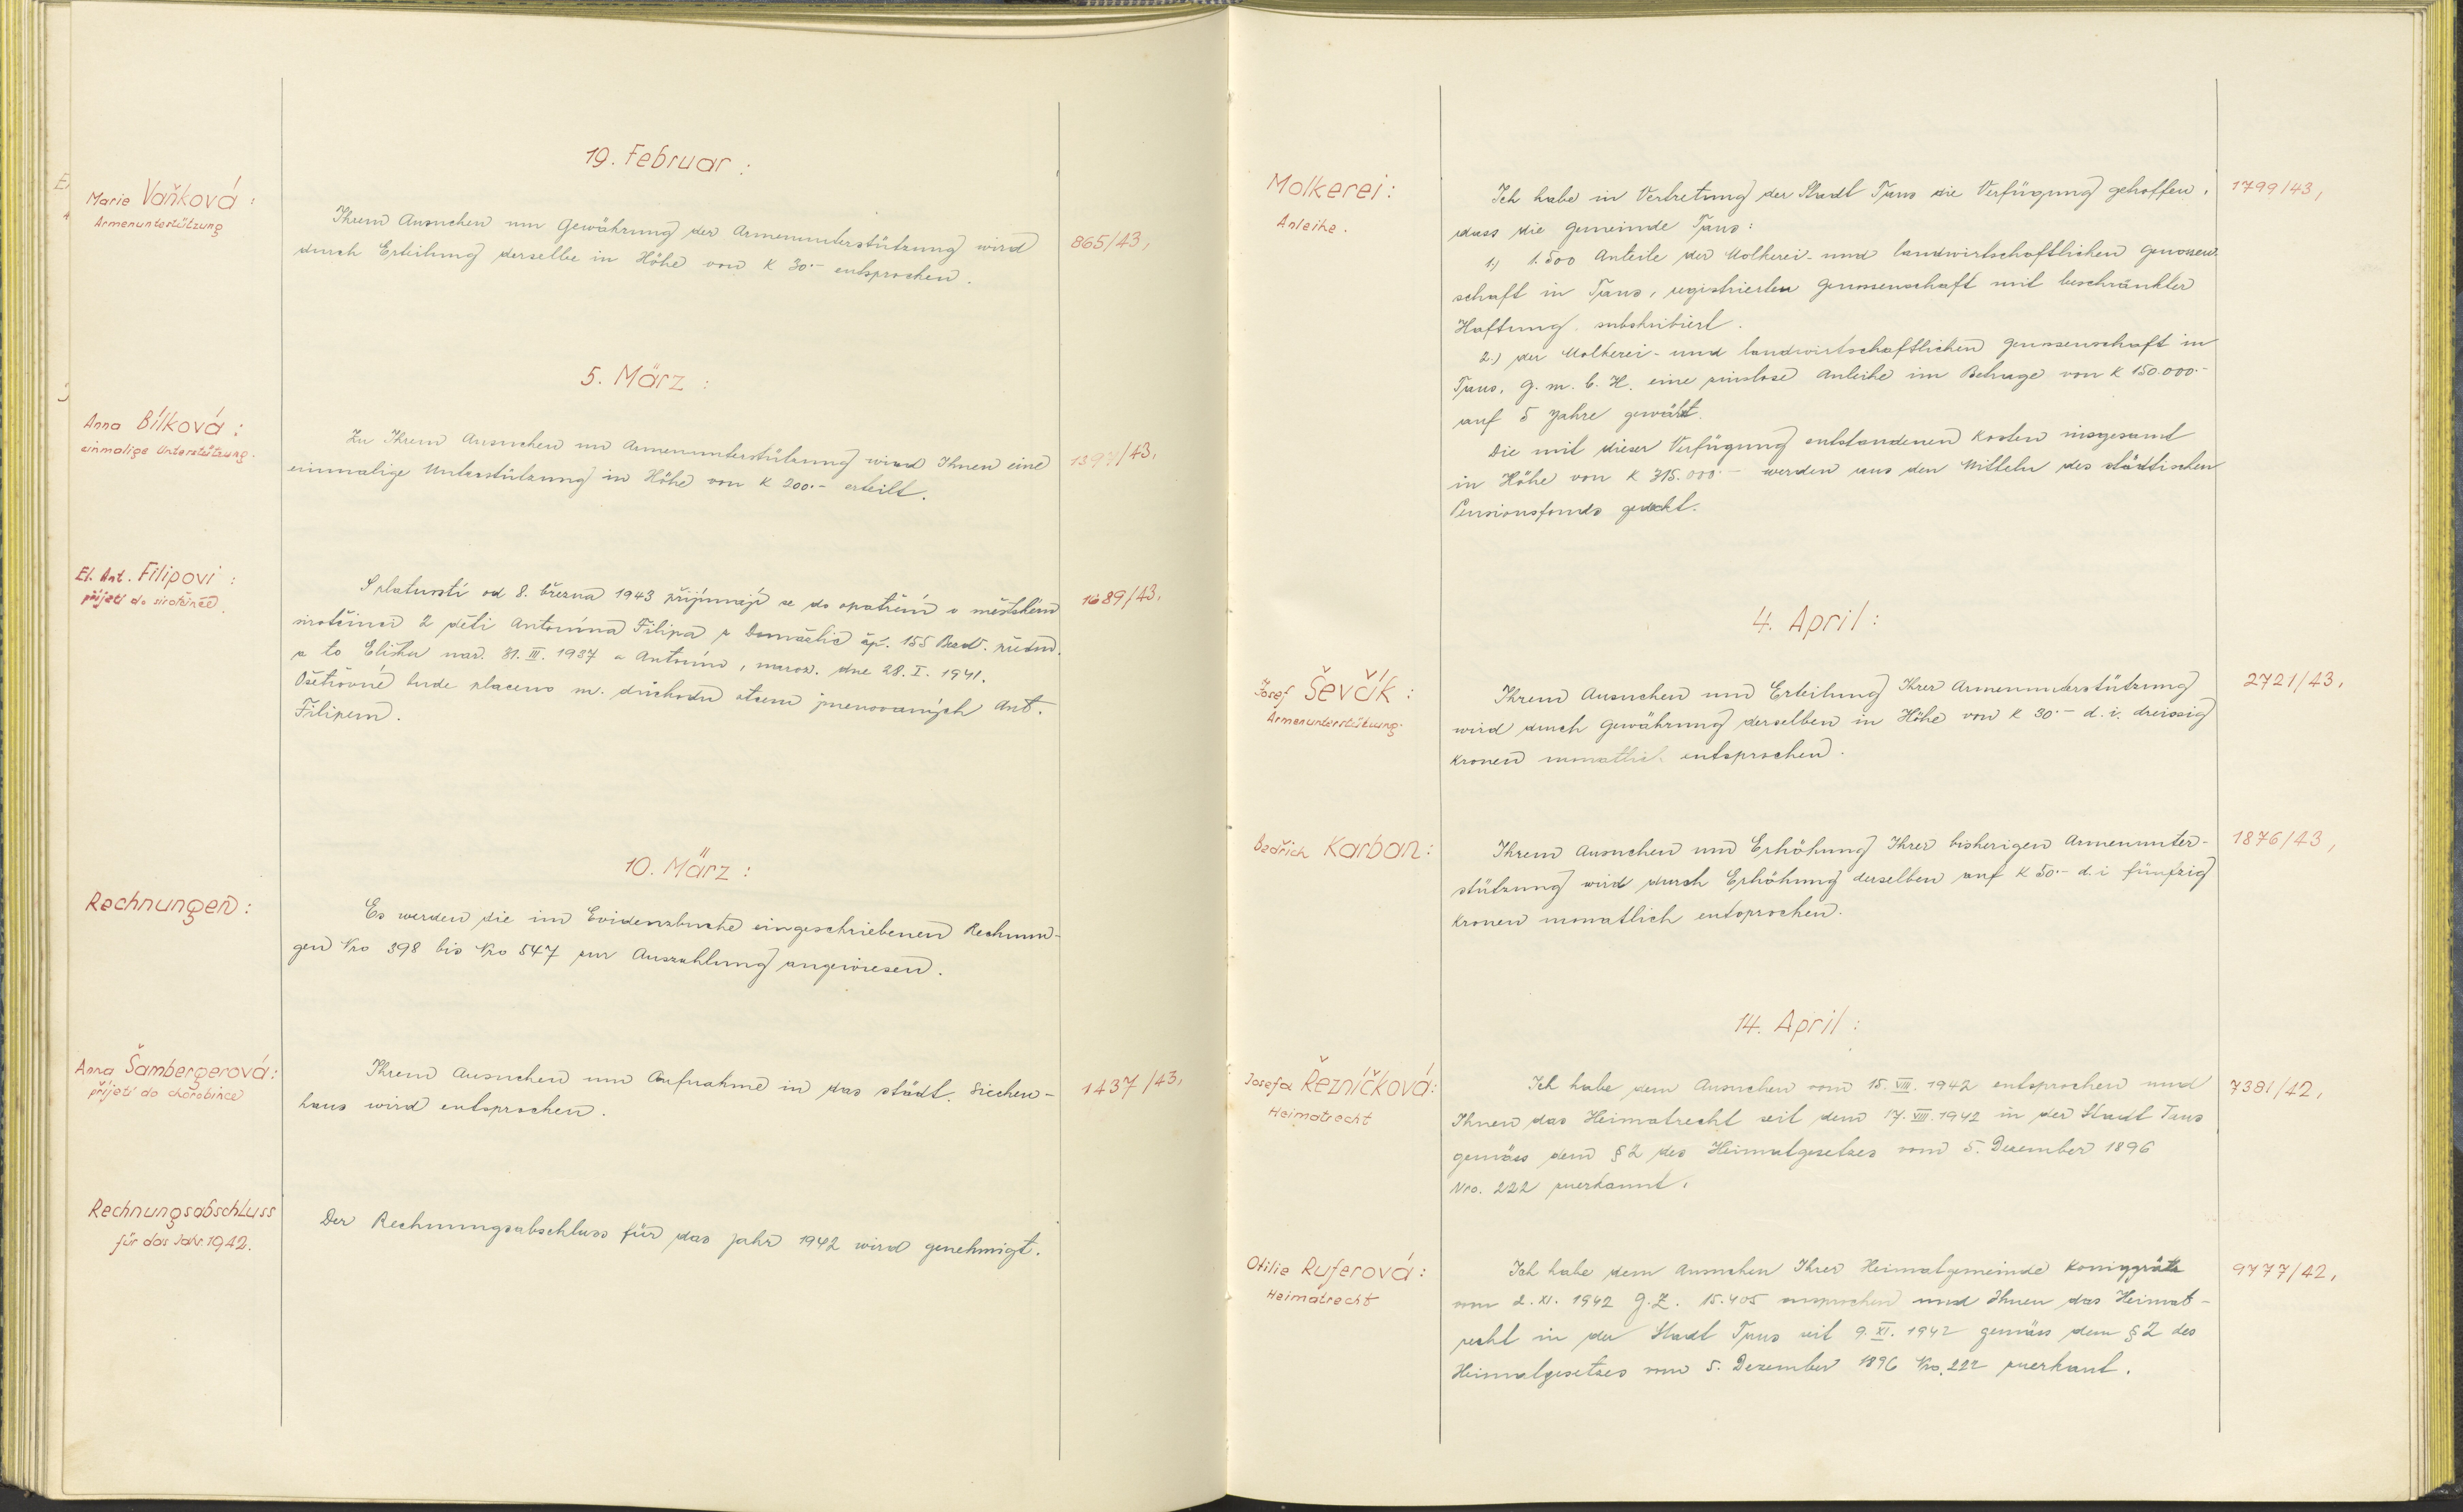 19. Februar:
Marie Vaňková:
Armenunterstützung
Ihrem Ansuchen um Gewährung der Armenunterstützung wird
durch Erteilung derselbe in Höhe von K 30.- entsprochen.
865/43,
5. März:
Anna Bílková:
einmalige Unterstützung.
Zu Ihrem Ansuchen um Armenunterstützung wird Ihnen eine
einmalige Unterstützung in Höhe von K 200.- erteilt.
1397/43,
El. Ant. Filipovi:
přijetí do sirotčince.
S platností od 8. března 1943 přijímají se do opatření v městském
sirotčinci 2 děti Antonína Filipa z Domažlic čp. 155 Bezd. předm.
a to Eliška nar. 31. III. 1937 a Antonín, naroz. dne 28. I. 1941.
Ošetřovné bude placeno m. důchodu otcem jmenovaných Ant.
Filipem.
1689/43,
10. März:
Rechnungen:
Es werden die im Evidenzbuche eingeschriebenen Rechnun-
gen Nro 398 bis Nro 547 zur Auszahlung angewiesen.
Anna Šambergerová:
přijetí do chorobince
Ihrem Ansuchen um Aufnahme in das städt. Siechen-
haus wird entsprochen.
1437/43,
Rechnungsabschluss
für das Jahr 1942.
Der Rechnungsabschluss für das Jahr 1942 wird genehmigt.
Molkerei:
Anleihe.
Ich habe in Vertretung der Stadt Taus die Verfügung getroffen,
dass die Gemeinde Taus:
1.) 1.500 Anteile der Molkerei- und landwirtschaftlichen Genossen-
schaft in Taus, registrierten Genossenschaft mit beschränkter
Haftung subskribiert.
2.) der Molkerei- und landwirtschaftlichen Genossenschaft in
Taus, G. m. b. H. eine zinslose Anleihe im Betrage von K 150.000.-
auf 5 Jahre gewährt.
Die mit dieser Verfügung entstandenen Kosten insgesamt
in Höhe von K 315.000.- werden aus den Mitteln des städtischen
Pensionsfonds gedeckt.
1799/43,
4. April:
Josef Ševčík:
Armenunterstützung.
Ihrem Ansuchen um Erteilung Ihrer Armenunterstützung
wird durch Gewährung derselben in Höhe von K 30.- d. i. dreissig
Kronen monatlich entsprochen.
2721/43,
Bedřich Karban:
Ihrem Ansuchen um Erhöhung Ihrer bisherigen Armenunter-
stützung wird durch Erhöhung derselben auf K 50.- d. i. fünfzig
Kronen monatlich entsprochen.
1876/43,
14. April:
Josefa Řezníčková:
Heimatrecht
Ich habe dem Ansuchen vom 15. VIII. 1942 entsprochen und
Ihnen das Heimatrecht seit dem 17. VIII. 1942 in der Stadt Taus
gemäss dem § 2 des Heimatgesetzes vom 5. Dezember 1896
Nro. 222 zuerkannt.
7381/42,
Otilie Ruferová:
Heimatrecht
Ich habe dem Ansuchen Ihrer Heimatgemeinde Königgrätz
vom 2. XI. 1942 G. Z. 15.405 entsprochen und Ihnen das Heimat-
recht in der Stadt Taus seit 9. XI. 1942 gemäss dem § 2 des
Heimatgesetzes vom 5. Dezember 1896 Nro. 222 zuerkant.
9777/42,